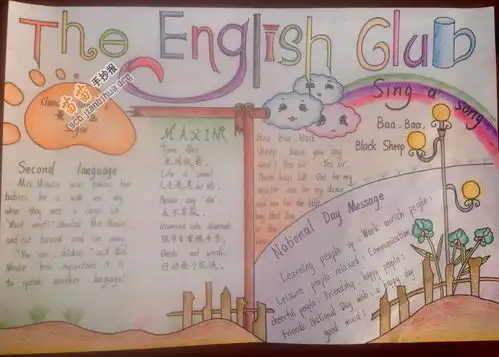 The English Club
手抄报
Sing a song
Baa, Baa,
Black Sheep
MAXIM
Second language
Mrs. Mouse was
babies for a walk one day
when they met a large cat
"Woof woof!" shouted Mrs. Mouse
and cat turned and ran away
"You see, children," said Mrs.
Mouse "how important it is
to speak another language!"
Time flies
Life is sweet
Never say "die".
永不言败。
Diamond cuts diamond
强中自有强中手。
Deeds, not words.
行动胜于言语。
Baa Baa black
sheep have you any
wool? Yes sir Yes sir.
Three bags full One for my
master one for my dame
and one for the little
boy that lives
in the
lane
National Day Message
Learning people up. Work enrich people;
Leisure people relaxed; Communication
cheerful people; Friendship happy people;
Friends National Day wish is a happy day
good mood!